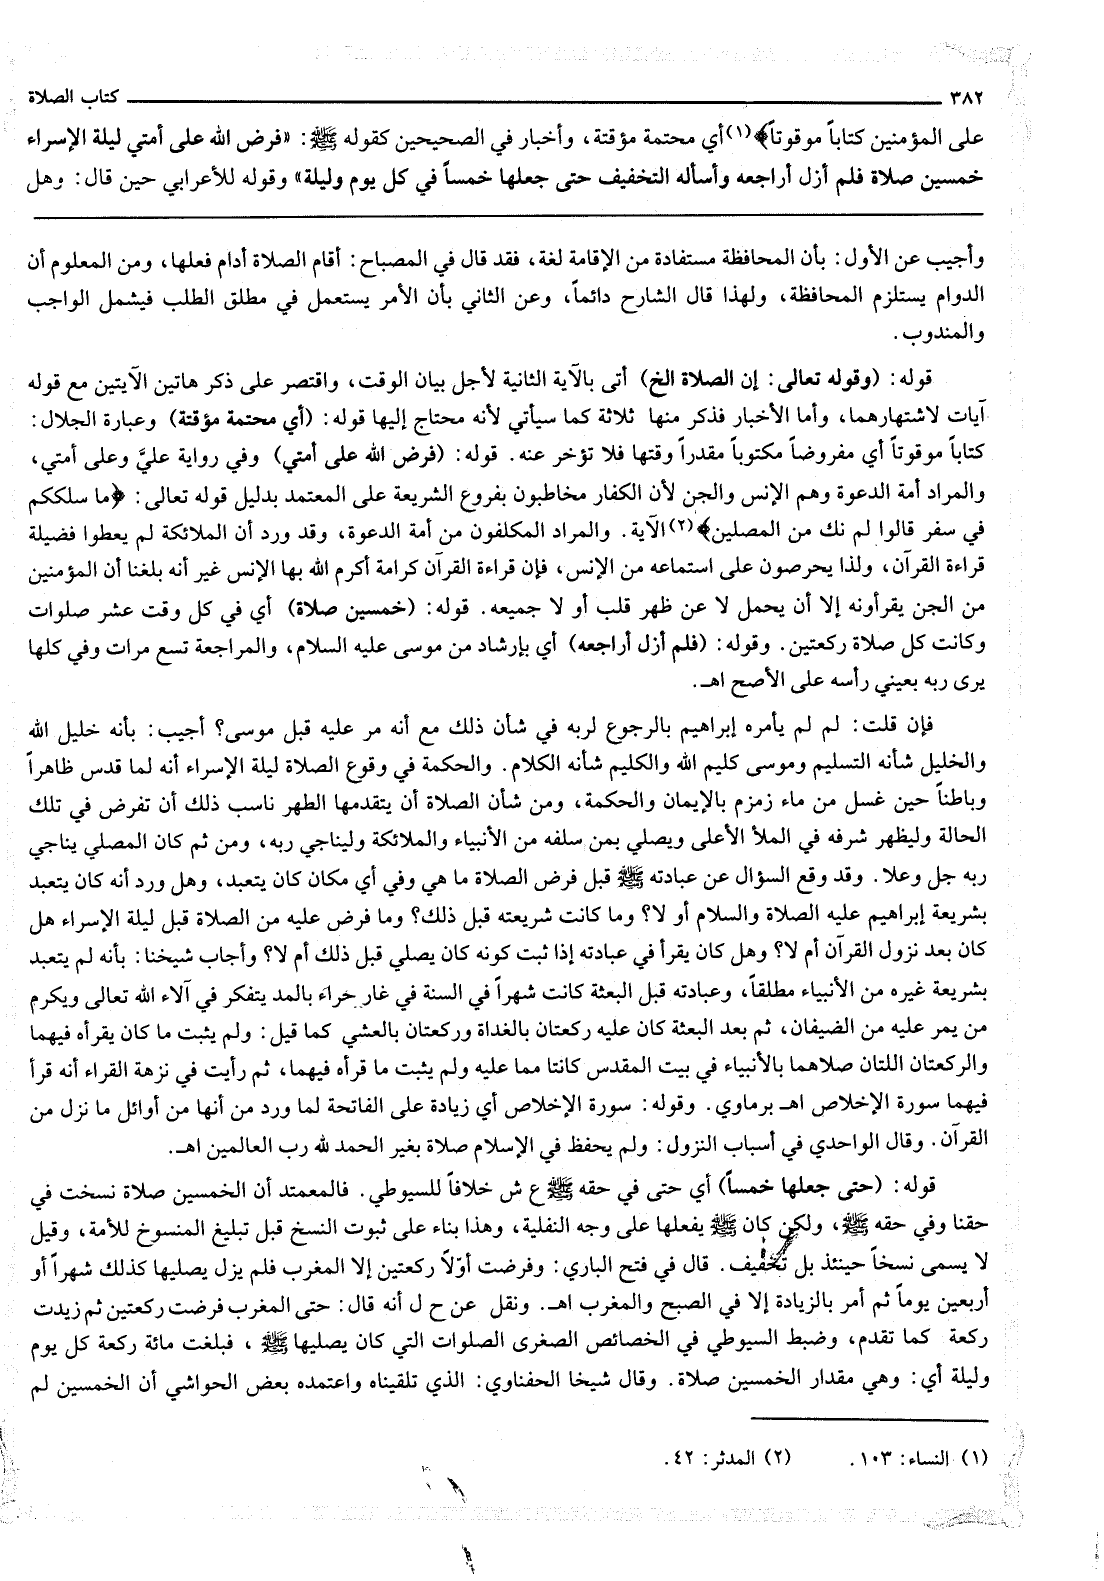 ٣٨٢ كتاب الصلاة
على المؤمنين كتاباً موقوتاً﴾(١) أي محتمة مؤقتة، وأخبار في الصحيحين كقوله ﷺ: «فرض الله على أمتي ليلة الإسراء
خمسين صلاة فلم أزل أراجعه وأسأله التخفيف حتى جعلها خمساً في كل يوم وليلة» وقوله للأعرابي حين قال: وهل
وأجيب عن الأول: بأن المحافظة مستفادة من الإقامة لغة، فقد قال في المصباح: أقام الصلاة أدام فعلها، ومن المعلوم أن
الدوام يستلزم المحافظة، ولهذا قال الشارح دائماً، وعن الثاني بأن الأمر يستعمل في مطلق الطلب فيشمل الواجب
والمندوب.
قوله: (وقوله تعالى: إن الصلاة الخ) أتى بالآية الثانية لأجل بيان الوقت، واقتصر على ذكر هاتين الآيتين مع قوله
آيات لاشتهارهما، وأما الأخبار فذكر منها ثلاثة كما سيأتي لأنه محتاج إليها قوله: (أي محتمة مؤقتة) وعبارة الجلال:
كتاباً موقوتاً أي مفروضاً مكتوباً مقدراً وقتها فلا تؤخر عنه. قوله: (فرض الله على أمتي) وفي رواية عليَّ وعلى أمتي،
والمراد أمة الدعوة وهم الإنس والجن لأن الكفار مخاطبون بفروع الشريعة على المعتمد بدليل قوله تعالى: ﴿ما سلككم
في سفر قالوا لم نك من المصلين﴾(٢) الآية. والمراد المكلفون من أمة الدعوة، وقد ورد أن الملائكة لم يعطوا فضيلة
قراءة القرآن، ولذا يحرصون على استماعه من الإنس، فإن قراءة القرآن كرامة أكرم الله بها الإنس غير أنه بلغنا أن المؤمنين
من الجن يقرأونه إلا أن يحمل لا عن ظهر قلب أو لا جميعه. قوله: (خمسين صلاة) أي في كل وقت عشر صلوات
وكانت كل صلاة ركعتين. وقوله: (فلم أزل أراجعه) أي بإرشاد من موسى عليه السلام، والمراجعة تسع مرات وفي كلها
يرى ربه بعيني رأسه على الأصح اهـ.
فإن قلت: لم لم يأمره إبراهيم بالرجوع لربه في شأن ذلك مع أنه مر عليه قبل موسى؟ أجيب: بأنه خليل الله
والخليل شأنه التسليم وموسى كليم الله والكليم شأنه الكلام. والحكمة في وقوع الصلاة ليلة الإسراء أنه لما قدس ظاهراً
وباطناً حين غسل من ماء زمزم بالإيمان والحكمة، ومن شأن الصلاة أن يتقدمها الطهر ناسب ذلك أن تفرض في تلك
الحالة وليظهر شرفه في الملأ الأعلى ويصلي بمن سلفه من الأنبياء والملائكة وليناجي ربه، ومن ثم كان المصلي يناجي
ربه جل وعلا. وقد وقع السؤال عن عبادته ﷺ قبل فرض الصلاة ما هي وفي أي مكان كان يتعبد، وهل ورد أنه كان يتعبد
بشريعة إبراهيم عليه الصلاة والسلام أو لا؟ وما كانت شريعته قبل ذلك؟ وما فرض عليه من الصلاة قبل ليلة الإسراء هل
كان بعد نزول القرآن أم لا؟ وهل كان يقرأ في عبادته إذا ثبت كونه كان يصلي قبل ذلك أم لا؟ وأجاب شيخنا: بأنه لم يتعبد
بشريعة غيره من الأنبياء مطلقاً، وعبادته قبل البعثة كانت شهراً في السنة في غار حراء بالمد يتفكر في آلاء الله تعالى ويكرم
من يمر عليه من الضيفان، ثم بعد البعثة كان عليه ركعتان بالغداة وركعتان بالعشي كما قيل: ولم يثبت ما كان يقرأه فيهما
والركعتان اللتان صلاهما بالأنبياء في بيت المقدس كانتا مما عليه ولم يثبت ما قرأه فيهما، ثم رأيت في نزهة القراء أنه قرأ
فيهما سورة الإخلاص اهـ برماوي. وقوله: سورة الإخلاص أي زيادة على الفاتحة لما ورد من أنها من أوائل ما نزل من
القرآن. وقال الواحدي في أسباب النزول: ولم يحفظ في الإسلام صلاة بغير الحمد لله رب العالمين اهـ.
قوله: (حتى جعلها خمساً) أي حتى في حقه ﷺ ع ش خلافاً للسيوطي. فالمعمتد أن الخمسين صلاة نسخت في
حقنا وفي حقه ﷺ، ولكن كان ﷺ يفعلها على وجه النفلية، وهذا بناء على ثبوت النسخ قبل تبليغ المنسوخ للأمة، وقيل
لا يسمى نسخاً حينئذ بل تخفيف. قال في فتح الباري: وفرضت أوّلاً ركعتين إلا المغرب فلم يزل يصليها كذلك شهراً أو
أربعين يوماً ثم أمر بالزيادة إلا في الصبح والمغرب اهـ. ونقل عن ح ل أنه قال: حتى المغرب فرضت ركعتين ثم زيدت
ركعة كما تقدم، وضبط السيوطي في الخصائص الصغرى الصلوات التي كان يصليها ﷺ، فبلغت مائة ركعة كل يوم
وليلة أي: وهي مقدار الخمسين صلاة. وقال شيخا الحفناوي: الذي تلقيناه واعتمده بعض الحواشي أن الخمسين لم
(١) النساء: ١٠٣. (٢) المدثر: ٤٢.